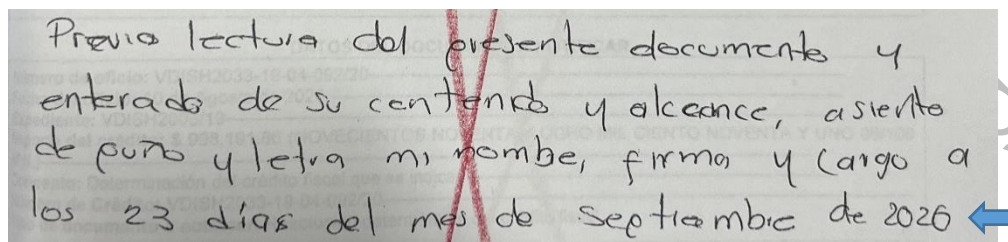 Previa lectura del presente documento y
enterado de su contenido y alceance, asiento
de puño y letra mi nombe, firma y cargo a
los 23 dias del mes de septiembre de 2020